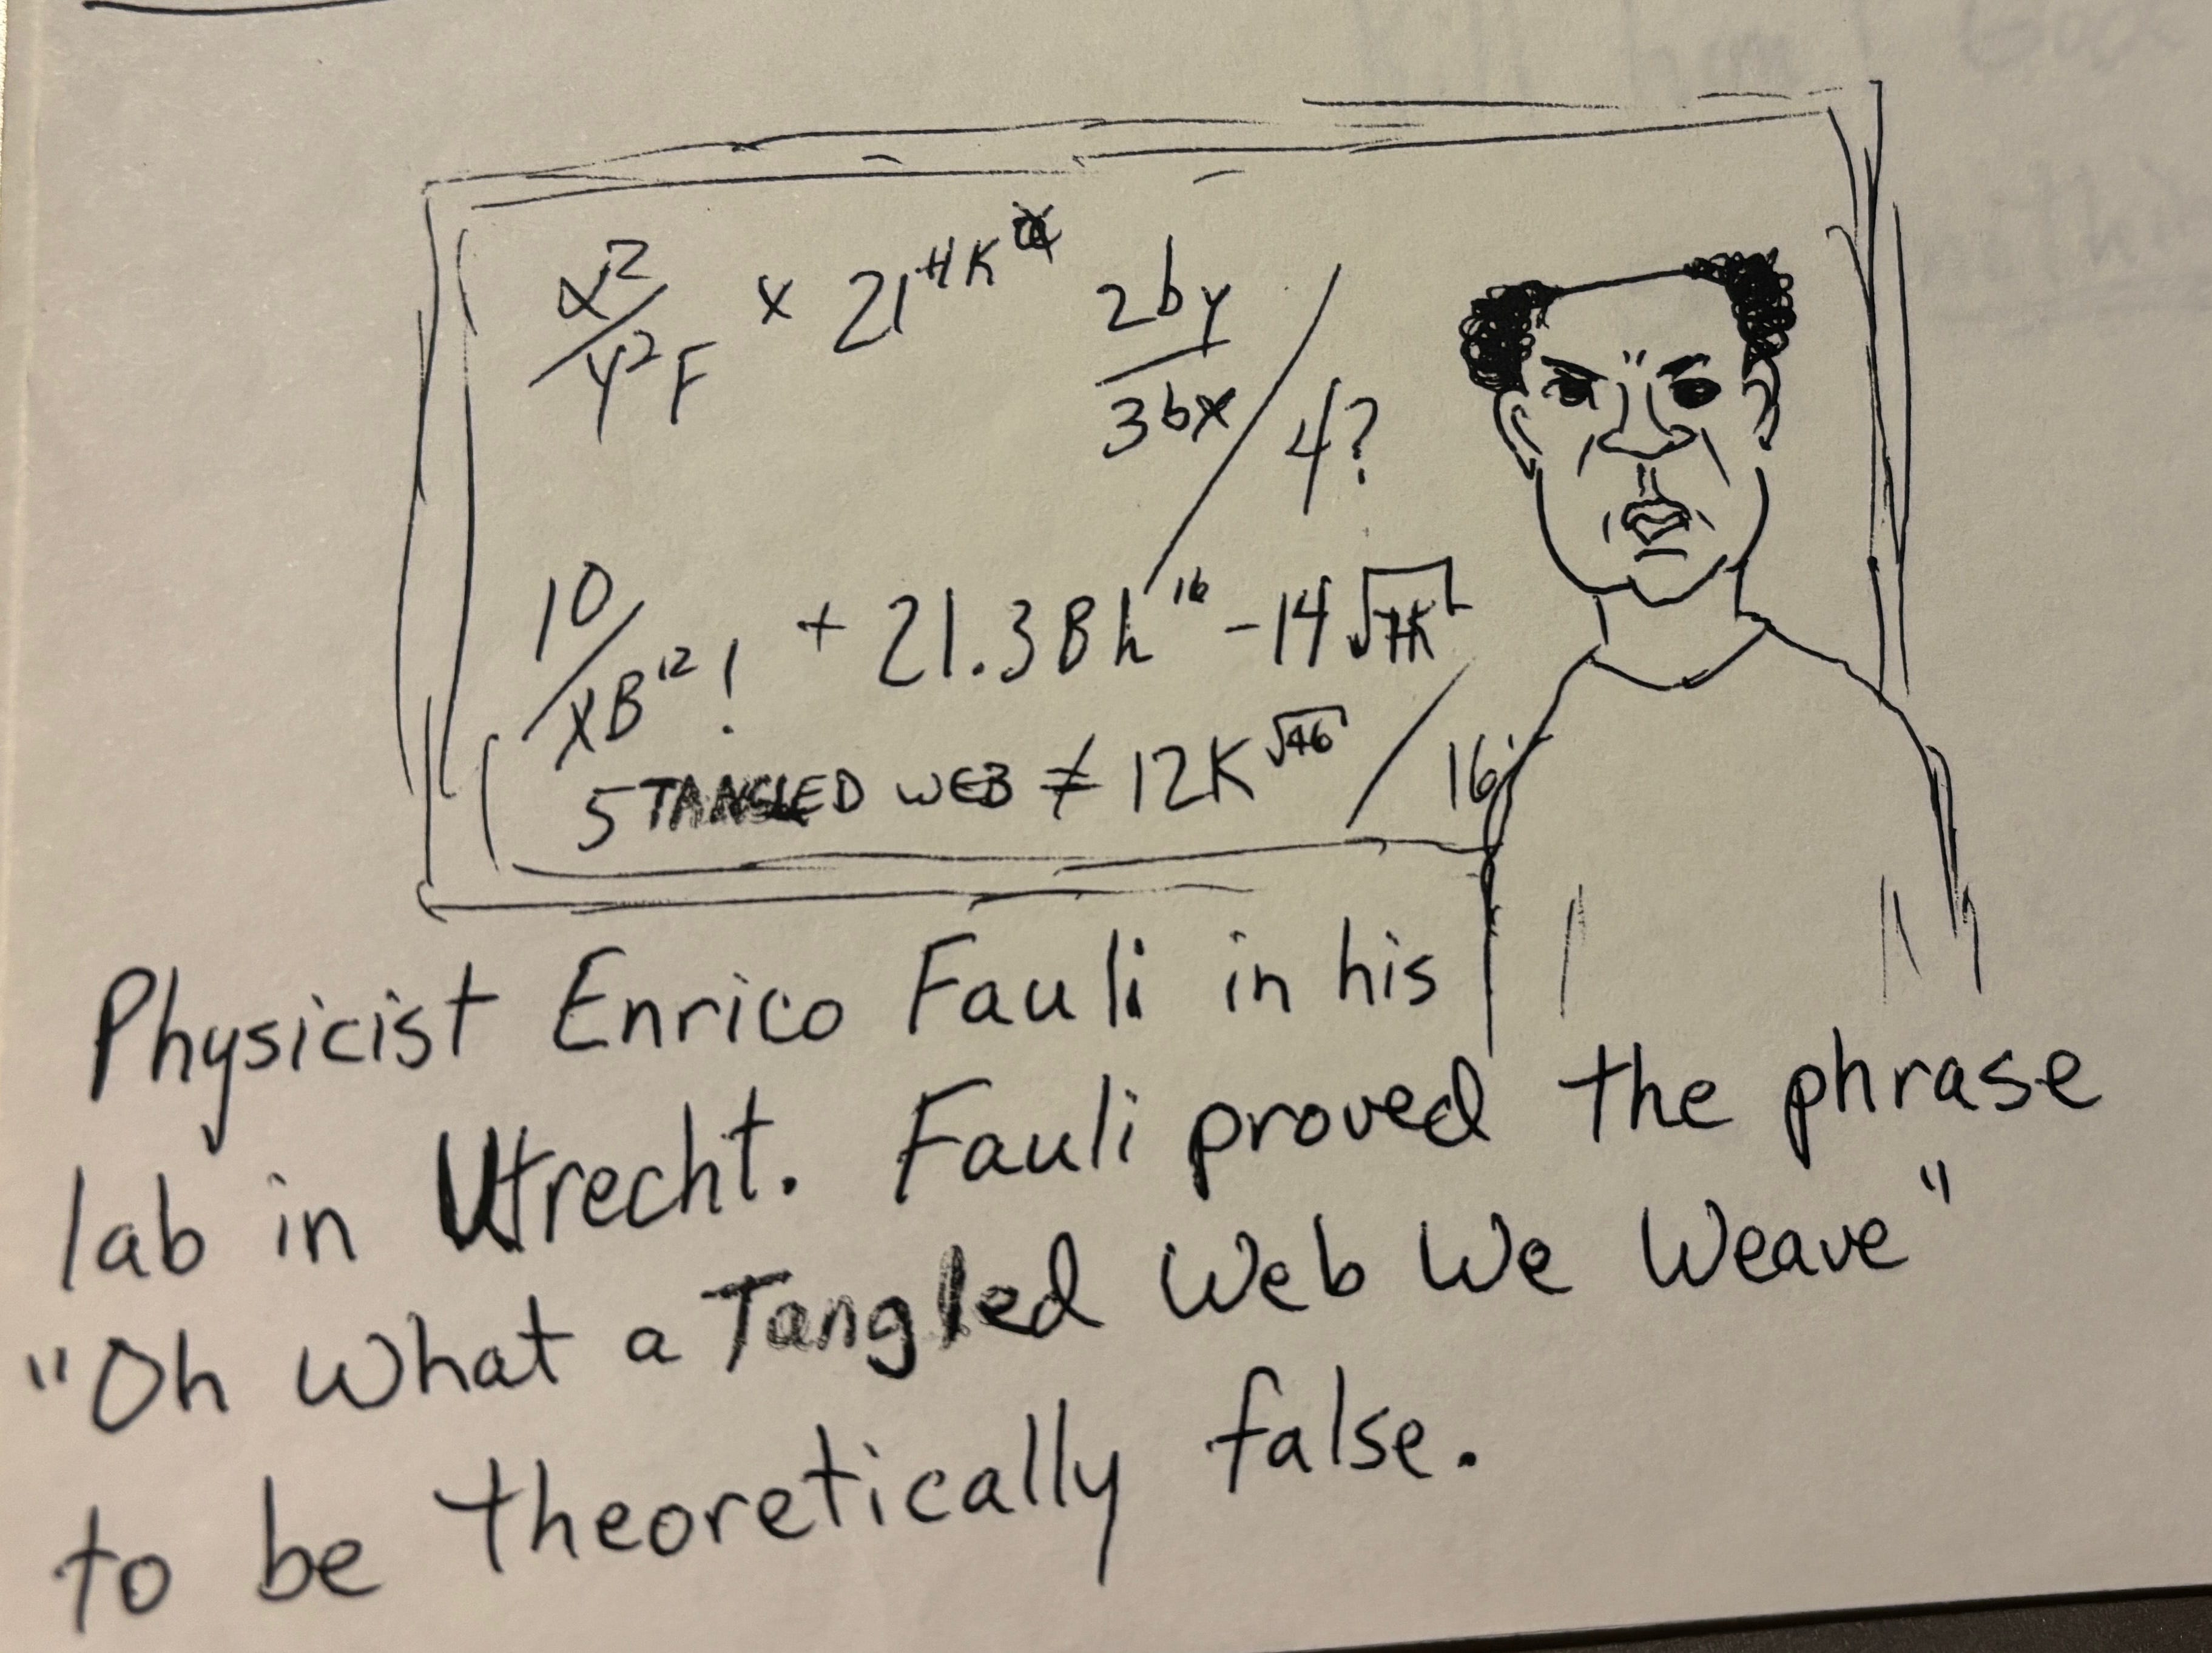 x²/y²F x 21^HK 2by/3bx / 4?
10/xB¹²! + 21.38h¹⁶ -14√HK
5 TANGLED WEB ≠ 12K^√46 / 16
Physicist Enrico Fauli in his
lab in Utrecht. Fauli proved the phrase
"Oh what a Tangled Web We Weave"
to be theoretically false.